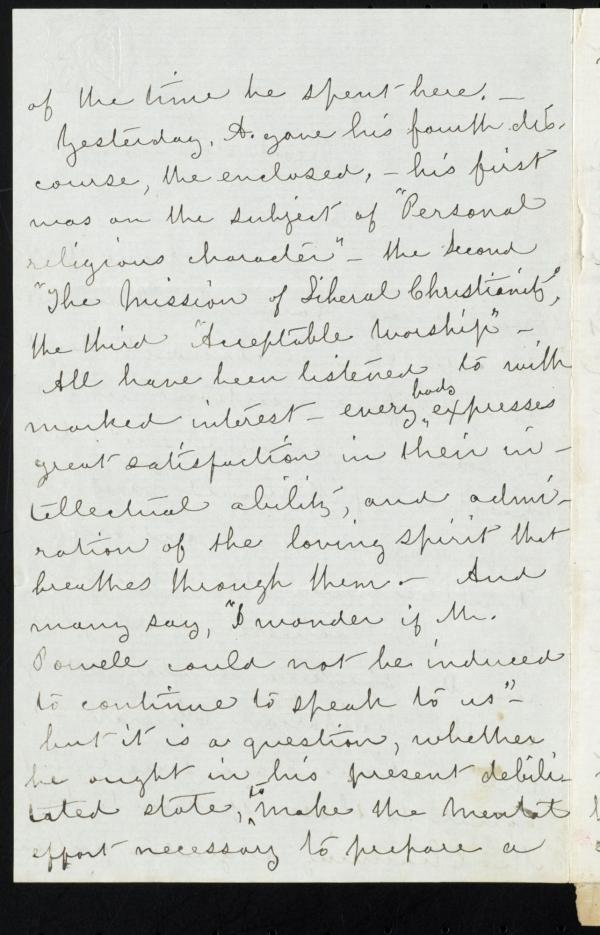 of the time he spent here. —
Yesterday, A. gave his fourth dis-
course, the enclosed, – his first
was on the subject of "Personal
religious character" – the second
"The Mission of Liberal Christianity",
the third "Acceptable Worship" –
All have been listened to with
marked interest – every body expresses
great satisfaction in their in-
tellectual ability, and admi-
ration of the loving spirit that
breathes through them. – And
many say, "I wonder if Mr.
Powell could not be induced
to continue to speak to us" –
but it is a question, whether
he ought in his present debili-
tated state, to make the mental
effort necessary to prepare a